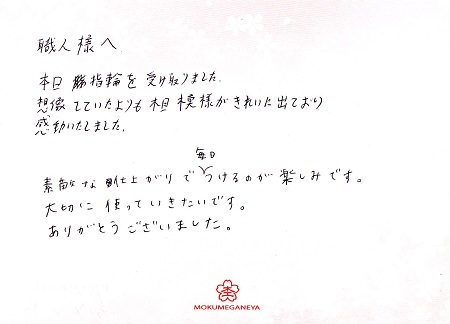 職人様へ
本日 指輪を受け取りました.
想像していたよりも木目模様がきれいに出ており
感動いたしました.
毎日
素敵な仕上がりでつけるのが楽しみです。
大切に使っていきたいです。
ありがとうございました。
MOKUMEGANEYA